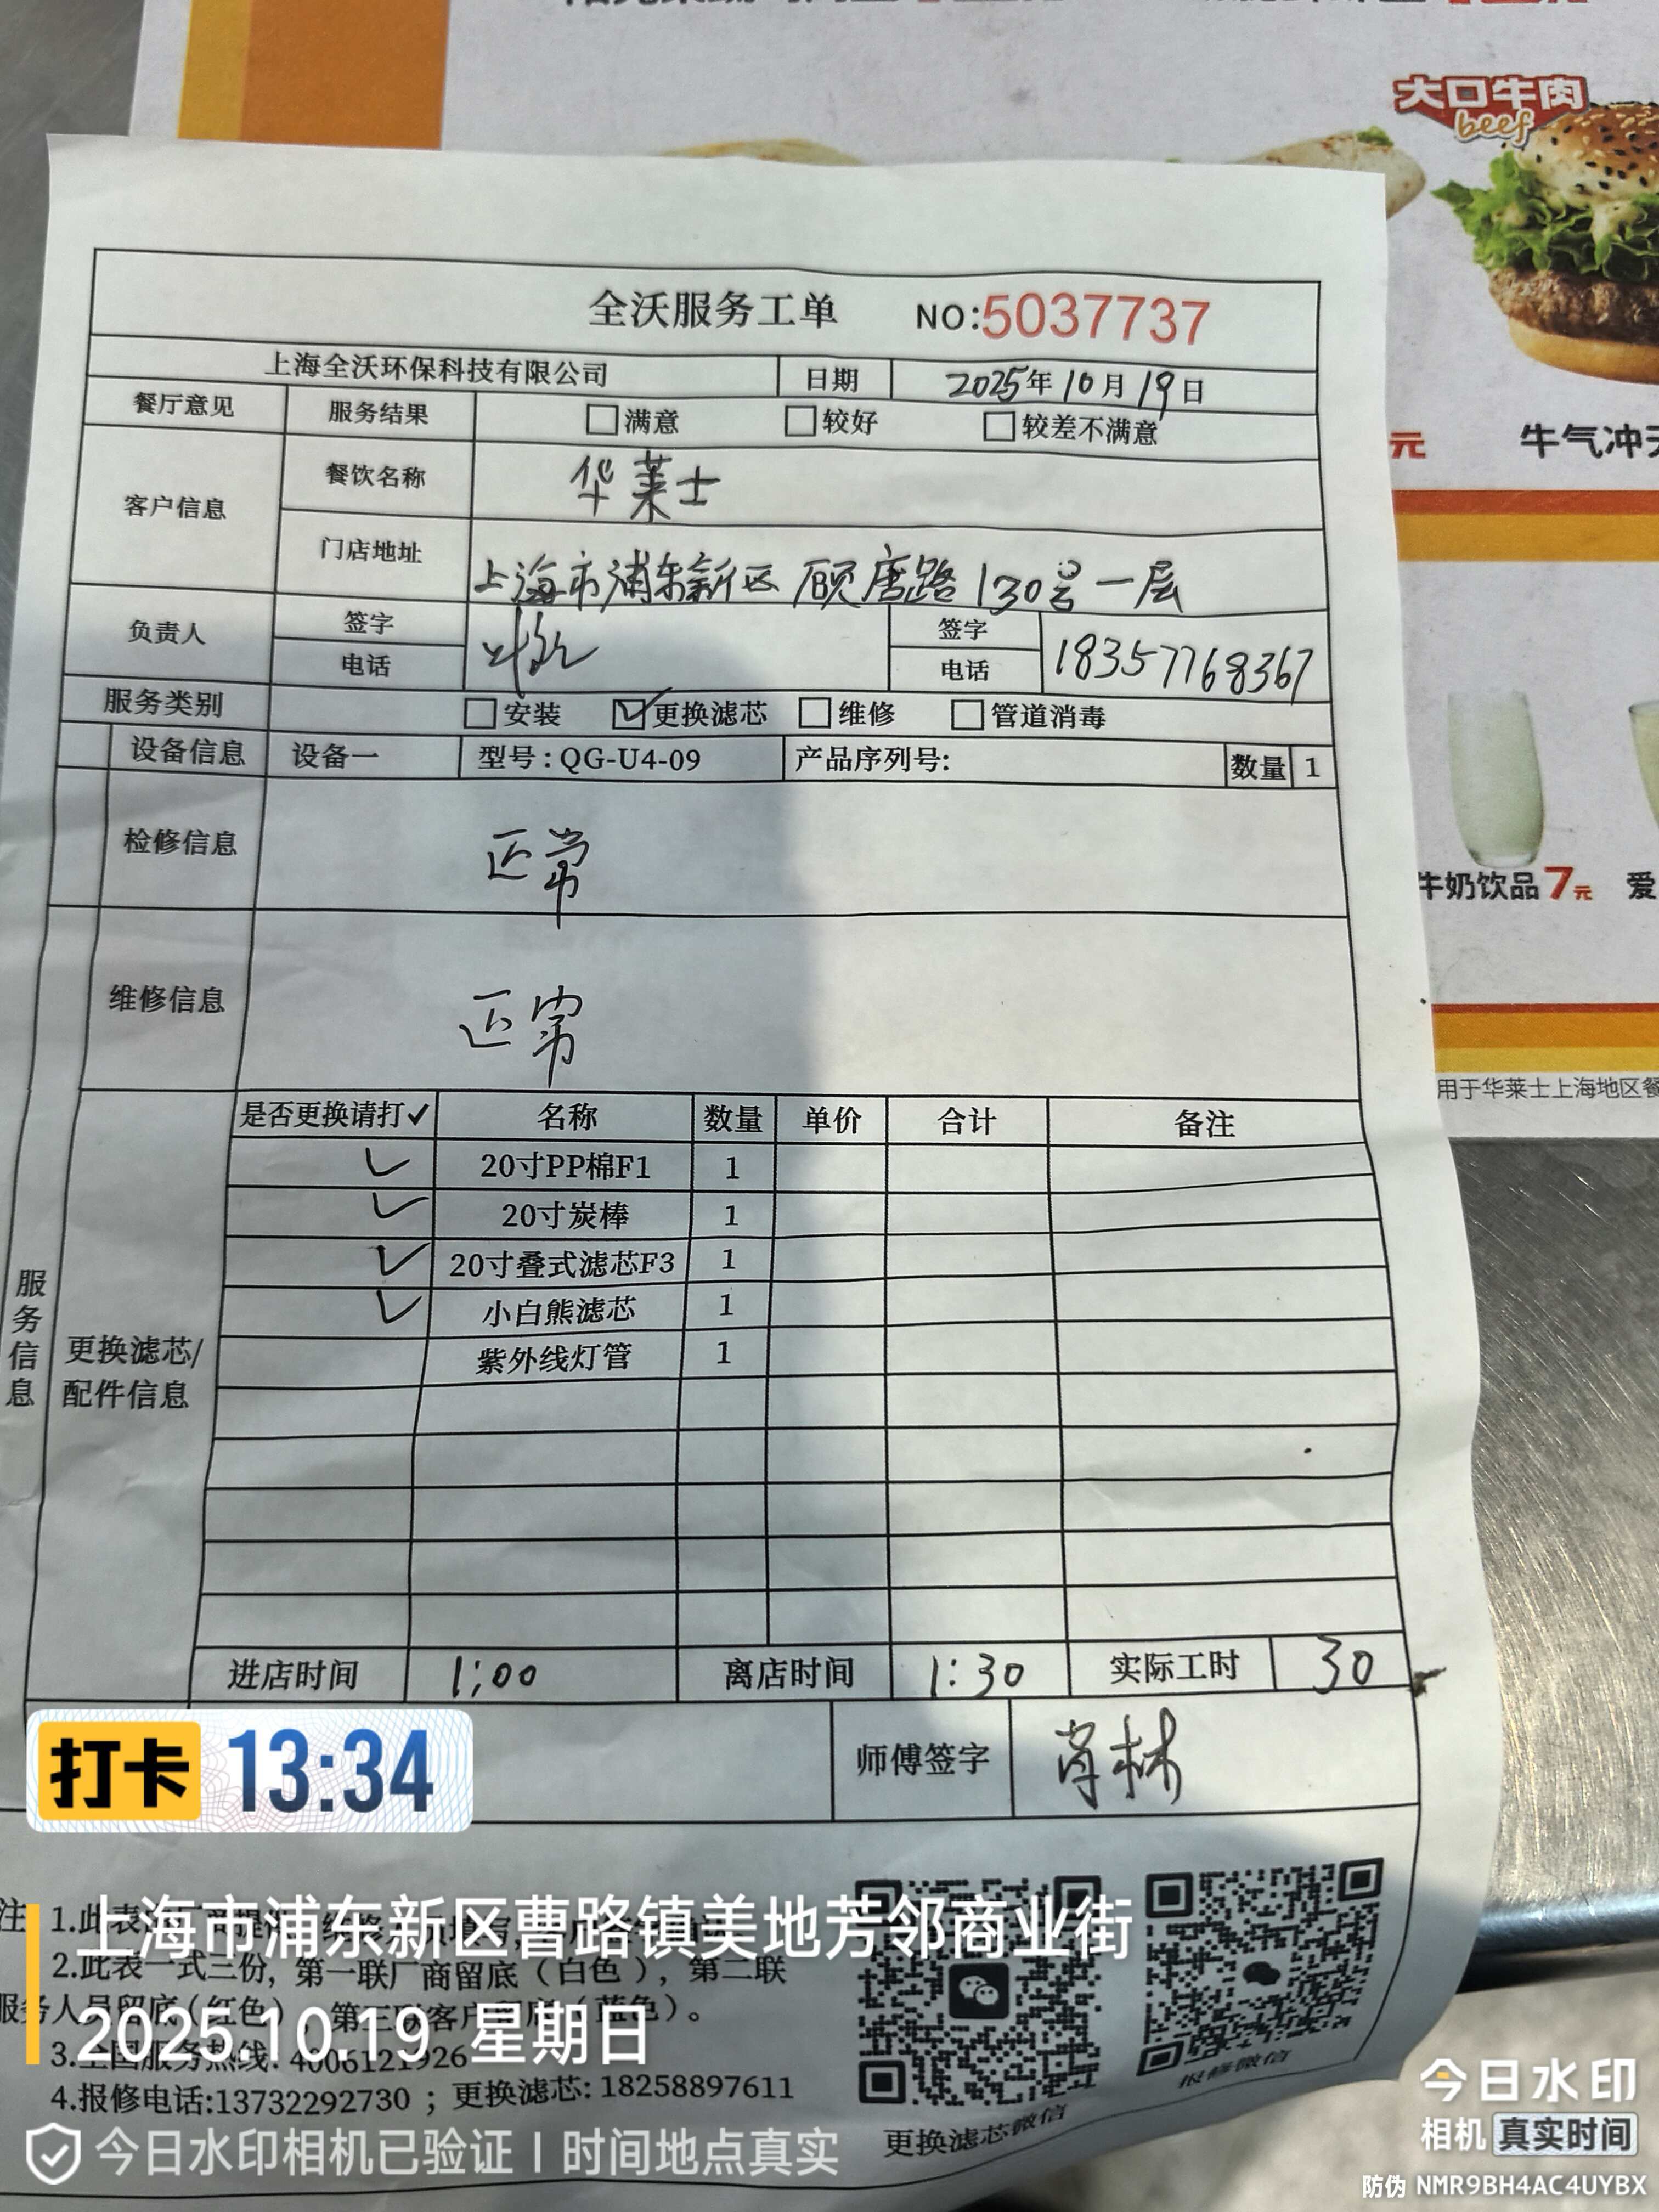 大口牛肉
beef
元
牛气冲天
牛奶饮品7元
爱
用于华莱士上海地区餐
全沃服务工单 NO:5037737
上海全沃环保科技有限公司 日期 2025年10月19日
餐厅意见 服务结果 满意 较好 较差不满意
客户信息 餐饮名称 华莱士
门店地址 上海市浦东新区顾唐路130号一层
负责人 签字 签字
电话 电话 18357768367
服务类别 安装 ✓更换滤芯 维修 管道消毒
设备信息 设备一 型号:QG-U4-09 产品序列号: 数量 1
检修信息 正常
维修信息 正常
服务信息
更换滤芯/
配件信息
是否更换请打✓ 名称 数量 单价 合计 备注
✓ 20寸PP棉F1 1
✓ 20寸炭棒 1
✓ 20寸叠式滤芯F3 1
✓ 小白熊滤芯 1
紫外线灯管 1
进店时间 1:00 离店时间 1:30 实际工时 30
师傅签字 肖林
打卡 13:34
注 1.此表
上海市浦东新区曹路镇美地芳邻商业街
2.此表一式三份,第一联厂商留底(白色),第二联
服务人员留底(红色) 第三联客户留底(蓝色)。
2025.10.19 星期日
3.全国服务热线:4006121926
4.报修电话:13732292730;更换滤芯:18258897611
更换滤芯微信
报修微信
今日水印相机已验证 | 时间地点真实
今日水印
相机 真实时间
防伪 NMR9BH4AC4UYBX